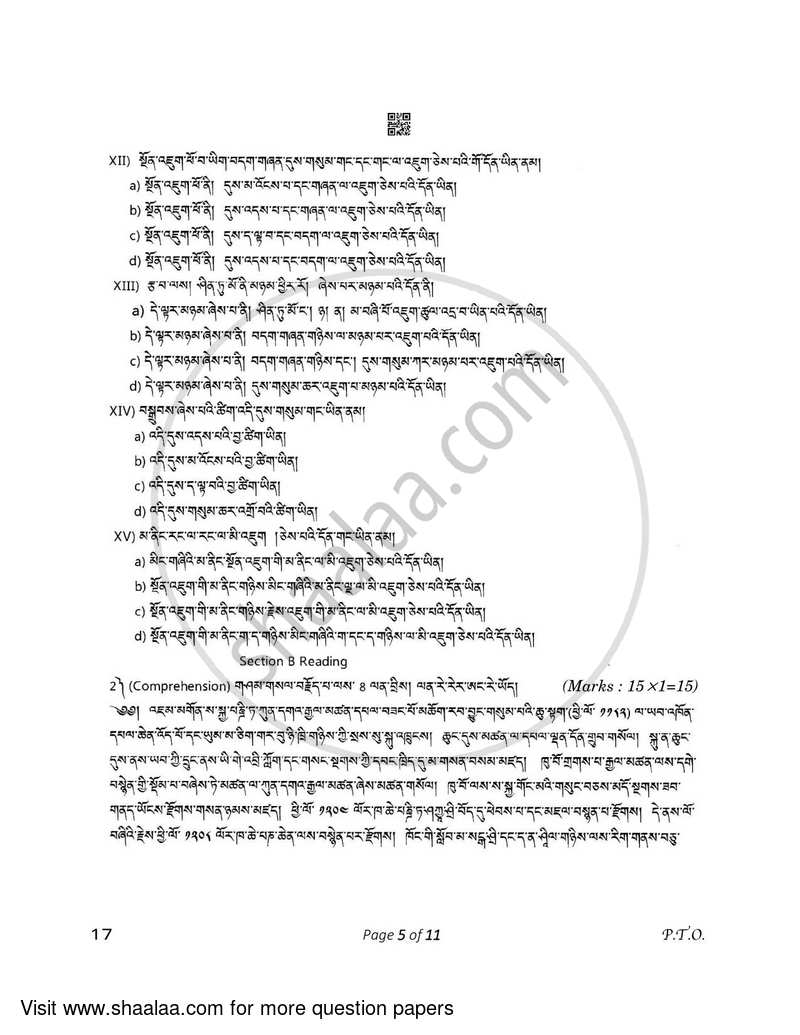 XII) སྔོན་འཇུག་ཕོ་བ་ཡིག་བདག་གཞན་དུས་གསུམ་གང་དང་གང་ལ་འཇུག་ཅེས་པའི་གོ་དོན་ཡིན་ནམ།
a) སྔོན་འཇུག་ཕོ་ནི། དུས་མ་འོངས་པ་དང་གཞན་ལ་འཇུག་ཅེས་པའི་དོན་ཡིན།
b) སྔོན་འཇུག་ཕོ་ནི། དུས་འདས་པ་དང་གཞན་ལ་འཇུག་ཅེས་པའི་དོན་ཡིན།
c) སྔོན་འཇུག་ཕོ་ནི། དུས་ད་ལྟ་བ་དང་བདག་ལ་འཇུག་ཅེས་པའི་དོན་ཡིན།
d) སྔོན་འཇུག་ཕོ་ནི། དུས་འདས་པ་དང་བདག་ལ་འཇུག་ཅེས་པའི་དོན་ཡིན།
XIII) རྩ་བ་ལས། ཤིན་ཏུ་མོ་ནི་མཉམ་ཕྱིར་རོ། ཞེས་པར་མཉམ་པའི་དོན་ནི།
a) དེ་ལྟར་མཉམ་ཞེས་པ་ནི། ཤིན་ཏུ་མོ་ང་། ཉ། ན། མ་བཞི་པོ་འཇུག་ཚུལ་འདྲ་བ་ཡིན་པའི་དོན་ཡིན།
b) དེ་ལྟར་མཉམ་ཞེས་པ་ནི། བདག་གཞན་གཉིས་ལ་མཉམ་པར་འཇུག་པའི་དོན་ཡིན།
c) དེ་ལྟར་མཉམ་ཞེས་པ་ནི། བདག་གཞན་གཉིས་དང་། དུས་གསུམ་ཀར་མཉམ་པར་འཇུག་པའི་དོན་ཡིན།
d) དེ་ལྟར་མཉམ་ཞེས་པ་ནི། དུས་གསུམ་ཆར་འཇུག་པ་མཉམ་པའི་དོན་ཡིན།
XIV) བསྒྲུབས་ཞེས་པའི་ཚིག་འདི་དུས་གསུམ་གང་ཡིན་ནམ།
a) འདི་དུས་འདས་པའི་བྱ་ཚིག་ཡིན།
b) འདི་དུས་མ་འོངས་པའི་བྱ་ཚིག་ཡིན།
c) འདི་དུས་ད་ལྟ་བའི་བྱ་ཚིག་ཡིན།
d) འདི་དུས་གསུམ་ཆར་འགྲོ་བའི་ཚིག་ཡིན།
XV) མ་ནིང་རང་ལ་རང་ལ་མི་འཇུག །ཅེས་པའི་དོན་གང་ཡིན་ནམ།
a) མིང་གཞིའི་མ་ནིང་སྔོན་འཇུག་གི་མ་ནིང་ལ་མི་འཇུག་ཅེས་པའི་དོན་ཡིན།
b) སྔོན་འཇུག་གི་མ་ནིང་གཉིས་མིང་གཞིའི་མ་ནིང་ལྔ་ལ་མི་འཇུག་ཅེས་པའི་དོན་ཡིན།
c) སྔོན་འཇུག་གི་མ་ནིང་གཉིས་རྗེས་འཇུག་གི་མ་ནིང་ལ་མི་འཇུག་ཅེས་པའི་དོན་ཡིན།
d) སྔོན་འཇུག་གི་མ་ནིང་ག་ད་གཉིས་མིང་གཞིའི་ག་དང་ད་གཉིས་ལ་མི་འཇུག་ཅེས་པའི་དོན་ཡིན།
Section B Reading
2༽ (Comprehension) གཤམ་གསལ་བརྗོད་པ་ལས་ 8 ལན་བྲིས། ལན་རེ་རེར་ཨང་རེ་ཡོད། (Marks : 15×1=15)
༄༅། འཇམ་མགོན་ས་སྐྱ་པཎྜི་ཏ་ཀུན་དགའ་རྒྱལ་མཚན་དཔལ་བཟང་པོ་མཆོག་རབ་བྱུང་གསུམ་པའི་ཆུ་སྟག་(ཕྱི་ལོ་ ༡༡༨༢) ལ་ཡབ་འཁོན་
དཔལ་ཆེན་འོད་པོ་དང་ཡུམ་མ་ཅིག་གར་བུ་ཉི་ཁྲི་གཉིས་ཀྱི་སྲས་སུ་སྐུ་འཁྲུངས། ཆུང་དུས་མཚན་ལ་དཔལ་ལྡན་དོན་གྲུབ་གསོལ། སྐུ་ན་ཆུང་
དུས་ནས་ཡབ་ཀྱི་དྲུང་ནས་ཡི་གེ་འབྲི་ཀློག་དང་གསང་སྔགས་ཀྱི་དབང་ཁྲིད་དུ་མ་གསན་བསམ་མཛད། ཁུ་བོ་གྲགས་པ་རྒྱལ་མཚན་ལས་དགེ་
བསྙེན་གྱི་སྡོམ་པ་བཞེས་ཏེ་མཚན་ལ་ཀུན་དགའ་རྒྱལ་མཚན་ཞེས་མཚན་གསོལ། ཁུ་བོ་ལས་ས་སྐྱ་གོང་མའི་གསུང་བཅས་མདོ་སྔགས་ཟབ་
གནད་ཡོངས་རྫོགས་གསན་ཉམས་མཛད། ཕྱི་ལོ་ ༡༢༠༤ ལོར་ཁ་ཆེ་པཎྜི་ཏ་ཤཀྱ་ཤྲི་བོད་དུ་ཕེབས་པ་དང་མཇལ་བསྟན་པ་རྫོགས། དེ་ནས་ལོ་
བཞིའི་རྗེས་ཕྱི་ལོ་ ༡༢༠༨ ལོར་ཁ་ཆེ་པཎ་ཆེན་ལས་བསྙེན་པར་རྫོགས། ཁོང་གི་སློབ་མ་སངྒ་ཤྲི་དང་ད་ན་ཤཱི་ལ་གཉིས་ལས་རིག་གནས་བཅུ་
17
Page 5 of 11
P.T.O.
shaalaa.com
Visit www.shaalaa.com for more question papers